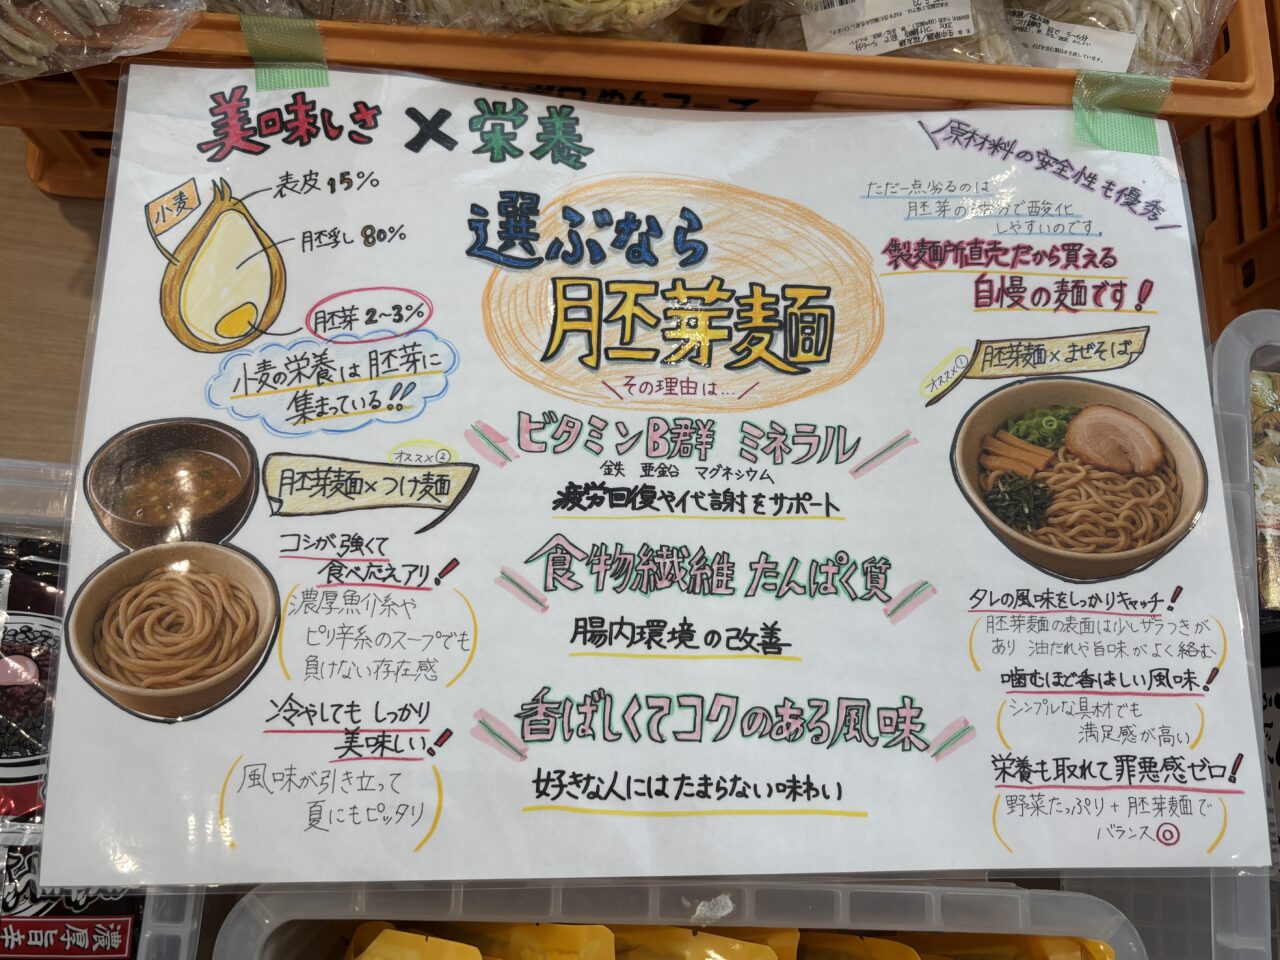 美味しさ×栄養
原材料の安全性も優秀
小麦
表皮 15%
胚乳 80%
胚芽 2~3%
小麦の栄養は胚芽に
集まっている!!
選ぶなら
胚芽麺
その理由は…
ただ一点劣るのは
胚芽の
で酸化
しやすいのです。
製麺所直売だから買える
自慢の麺です!
オススメ①
胚芽麺×まぜそば
オススメ②
胚芽麺×つけ麺
コシが強くて
食べごたえアリ!
濃厚魚介系や
ピリ辛系のスープでも
負けない存在感
冷やしてもしっかり
美味しい!
風味が引き立って
夏にもピッタリ
ビタミンB群 ミネラル
鉄 亜鉛 マグネシウム
疲労回復や代謝をサポート
食物繊維 たんぱく質
腸内環境の改善
香ばしくてコクのある風味
好きな人にはたまらない味わい
タレの風味をしっかりキャッチ!
胚芽麺の表面は少しザラつきが
あり 油だれや旨味がよく絡む
噛むほど香ばしい風味!
シンプルな具材でも
満足感が高い
栄養も取れて罪悪感ゼロ!
野菜たっぷり+胚芽麺で
バランス◎
濃厚旨辛